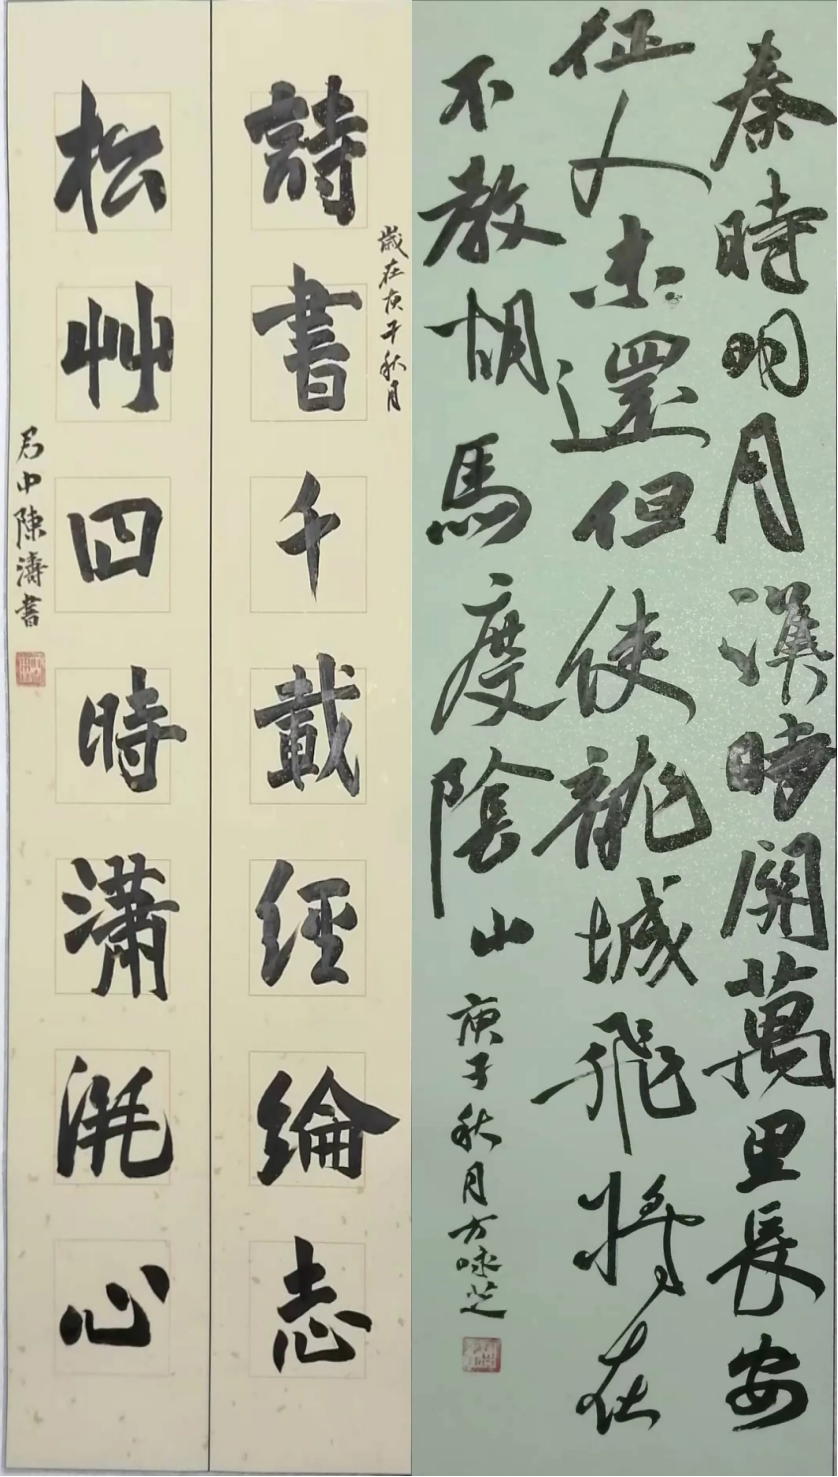 秦時明月漢時關萬里長安
征人未還但使龍城飛將在
不教胡馬度陰山
庚子秋月方咏芝
歲在庚子秋月
詩書千載經綸志
松竹四時瀟洒心
中陳濤書